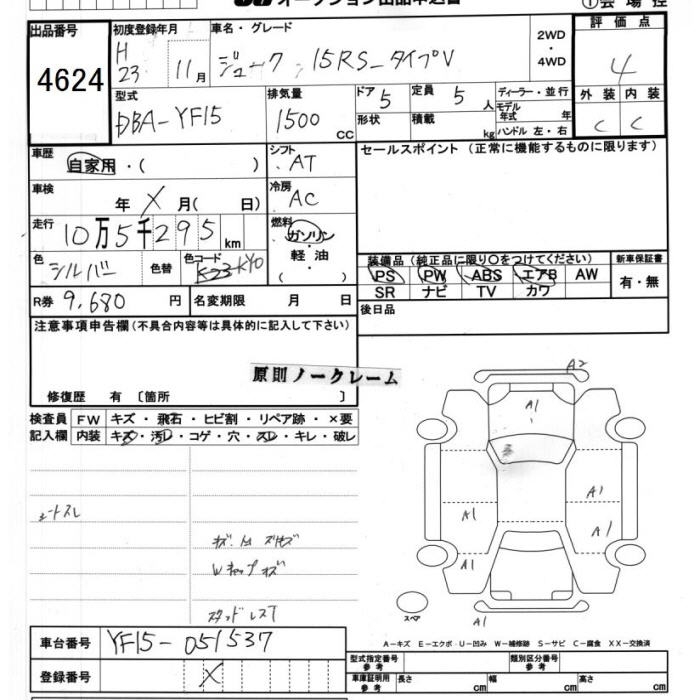 オークション出品申込書
①会場控
出品番号
4624
初度登録年月
H
23
11月
車名・グレード
ジューク 15RS-タイプV
2WD
・
4WD
評価点
4
型式
DBA-YF15
排気量
1500
CC
ドア
5
定員
5
人
形状
積載
kg
ディーラー・並行
モデル
年式
年
ハンドル 左・右
外装
内装
C
C
車歴
自家用・( )
シフト
AT
セールスポイント (正常に機能するものに限ります)
車検
年 X 月( 日)
冷房
AC
走行
10万5千295
km
燃料
ガソリン
軽・油
( )
色
シルバー
色替
色コード
K23 KY0
装備品 (純正品に限り〇をつけてください)
新車保証書
PS PW ABS エアB AW
SR ナビ TV カワ
有・無
R券
9,680
円
名変期限
月 日
後日品
注意事項申告欄 (不具合内容等は具体的に記入して下さい)
原則ノークレーム
修復歴 有 〔箇所 〕
検査員
記入欄
FW
キズ・飛石・ヒビ割・リペア跡・×要
内装
キズ・汚レ・コゲ・穴・スレ・キレ・破レ
シートスレ
Wキャップキズ
スタッドレスT
A2
A1
A1
A1
A1
A1
A1
スペア
車台番号
YF15-051537
登録番号
X
A-キズ E-エクボ U-凹み W-補修跡 S-サビ C-腐食 XX-交換済
型式指定番号
参考
類別区分番号
参考
車庫証明用
参考
長さ
cm
幅
cm
高さ
cm